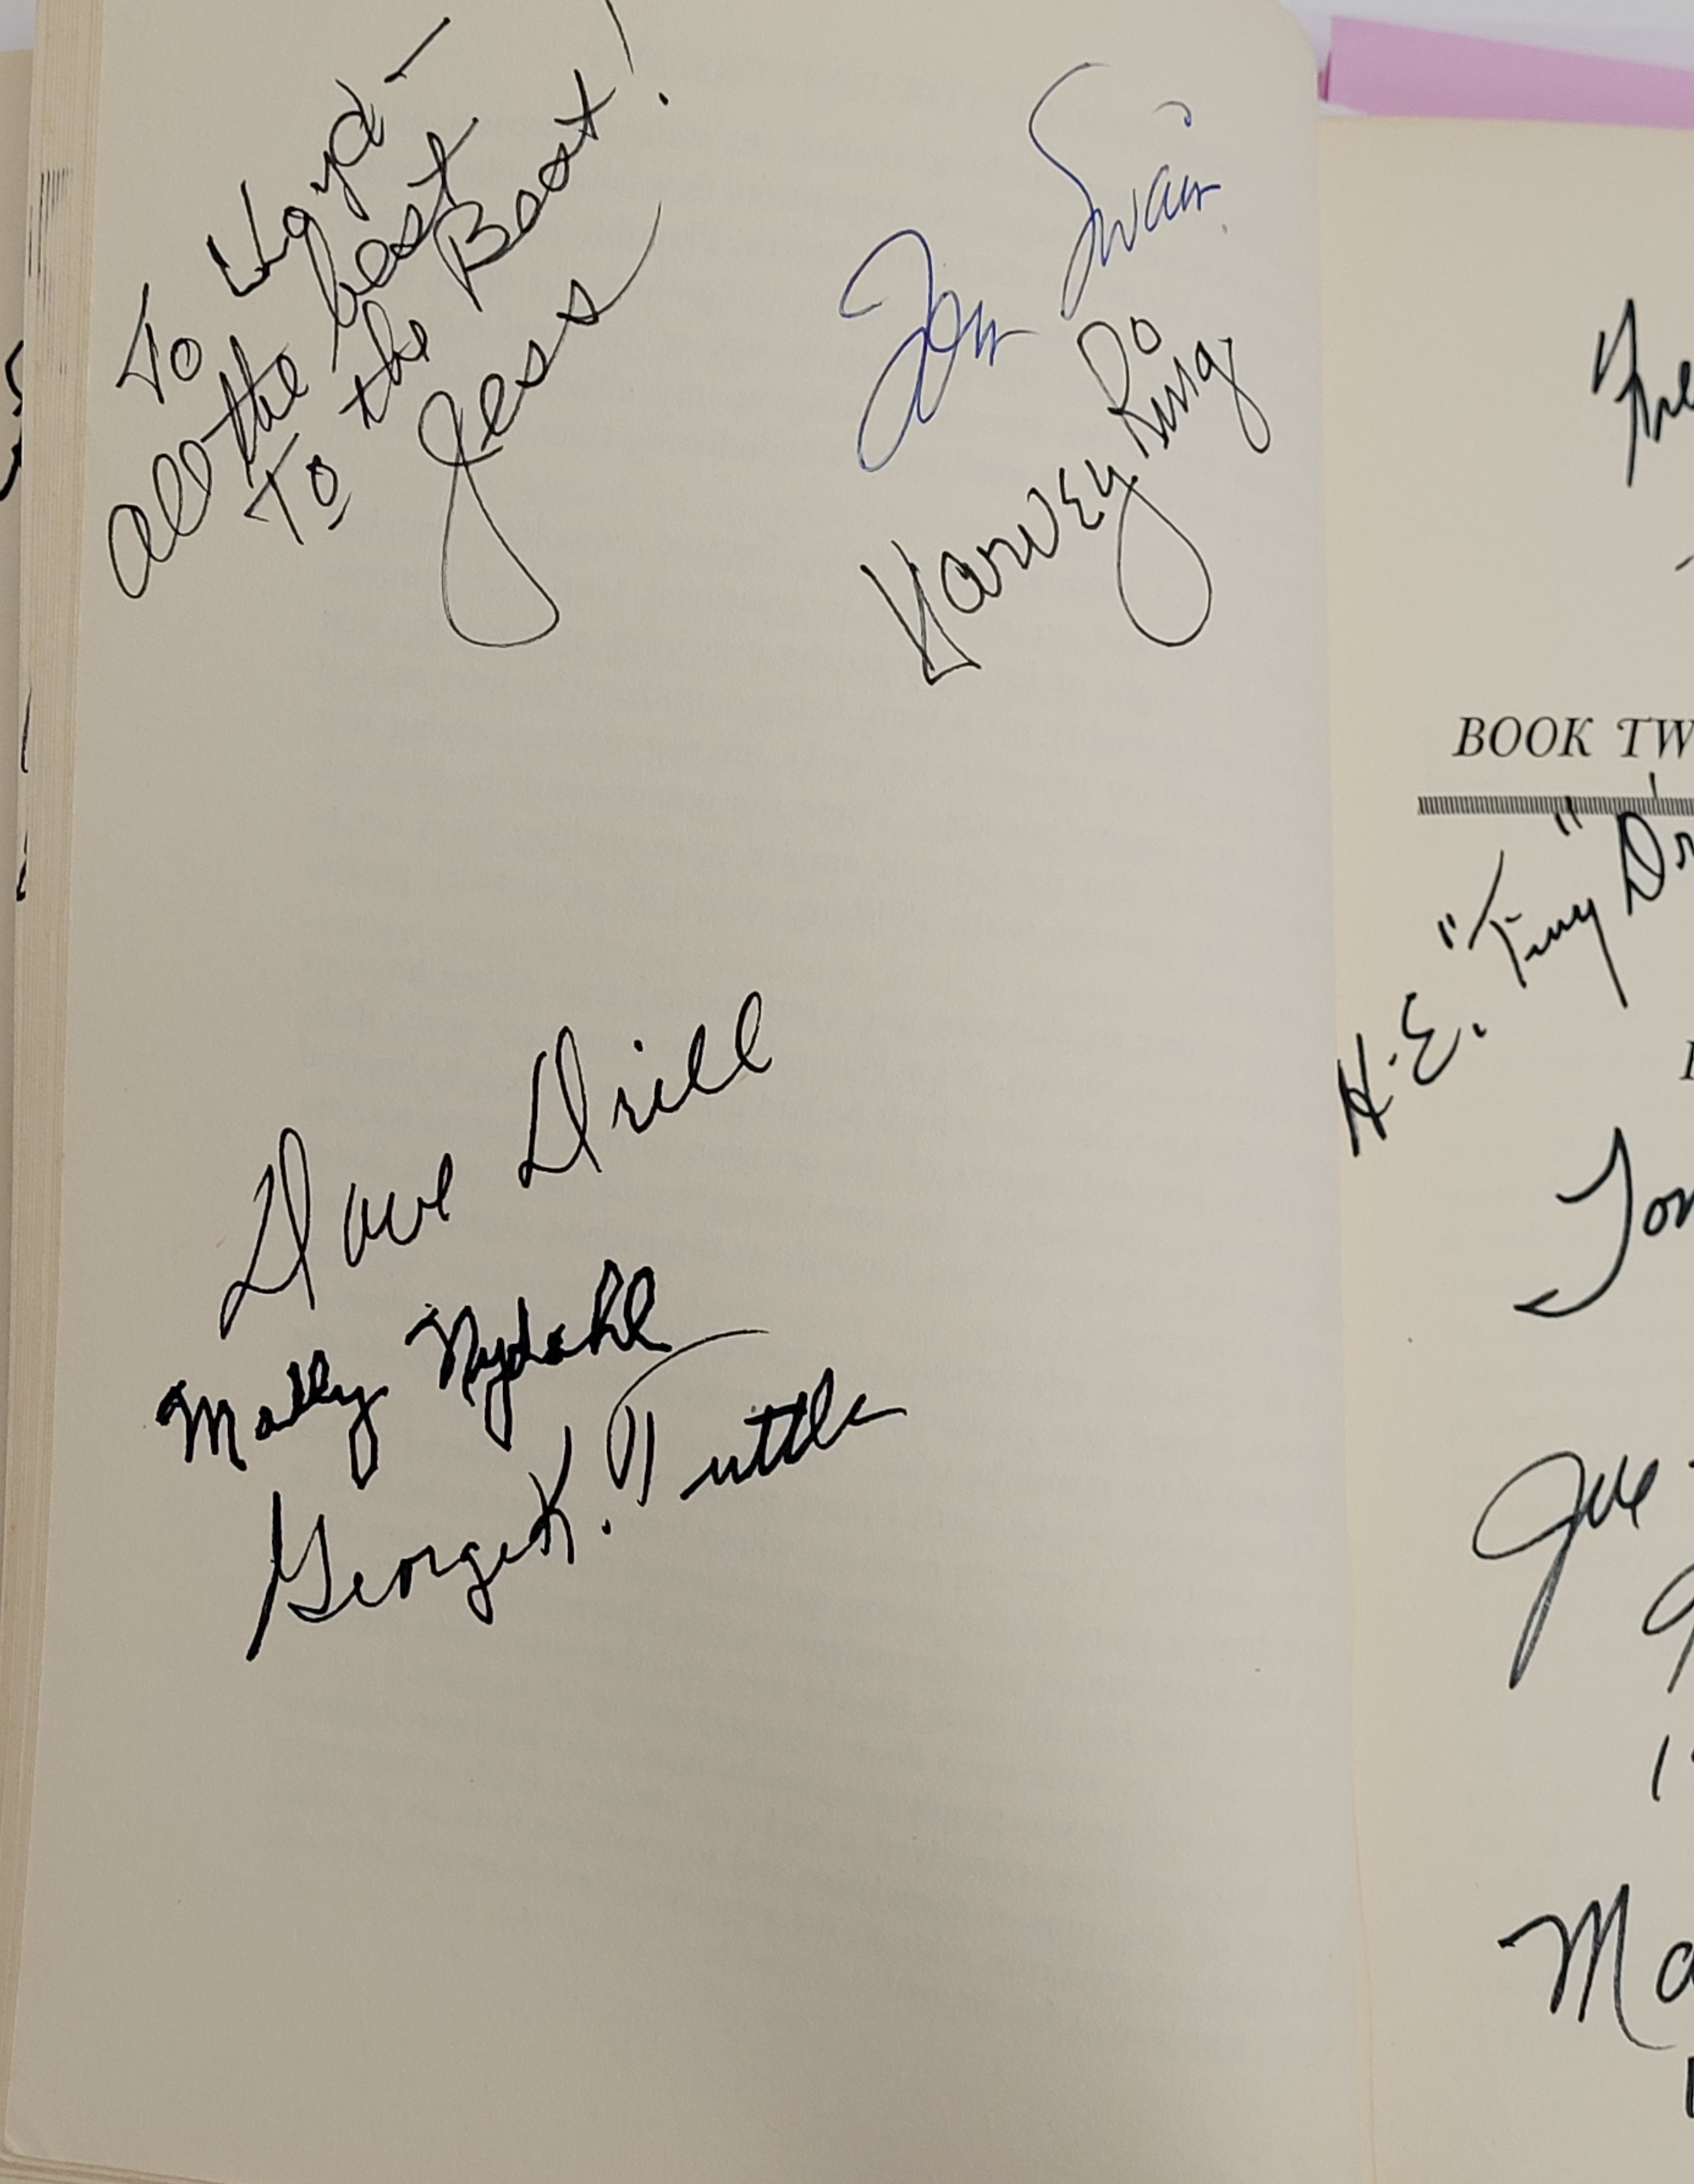 To Lloyd -
all the best
To the Boat!
Jess
Tom Swain
Harvey Ro
Ring
Dave Drill
Mally Nydahl
George K. Tuttle
BOOK TW
H.E. "Tiny" Dr
Tom
Joe
Ma